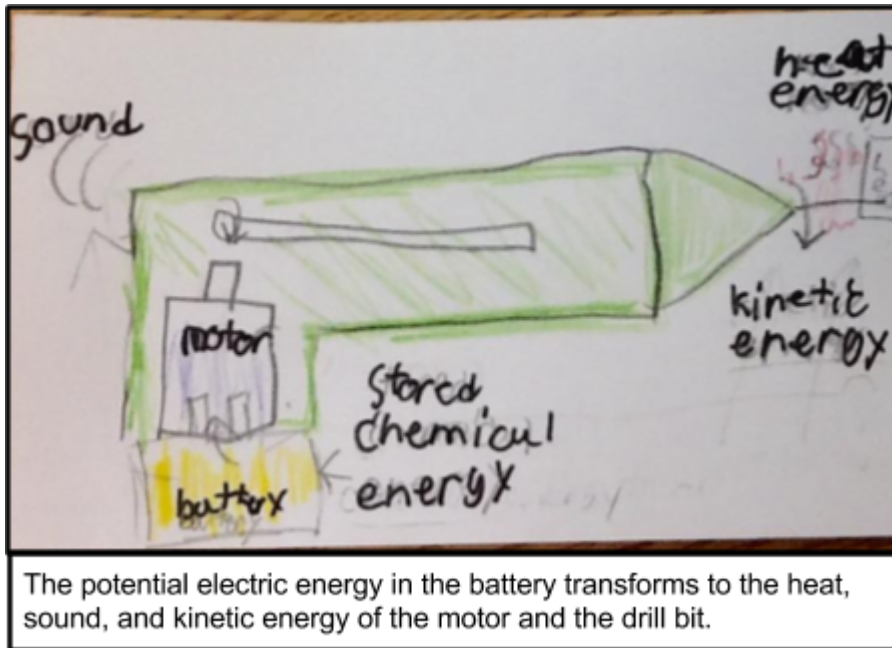 sound
heat
energy
motor
kinetic
energy
stored
chemical
energy
battery
The potential electric energy in the battery transforms to the heat,
sound, and kinetic energy of the motor and the drill bit.